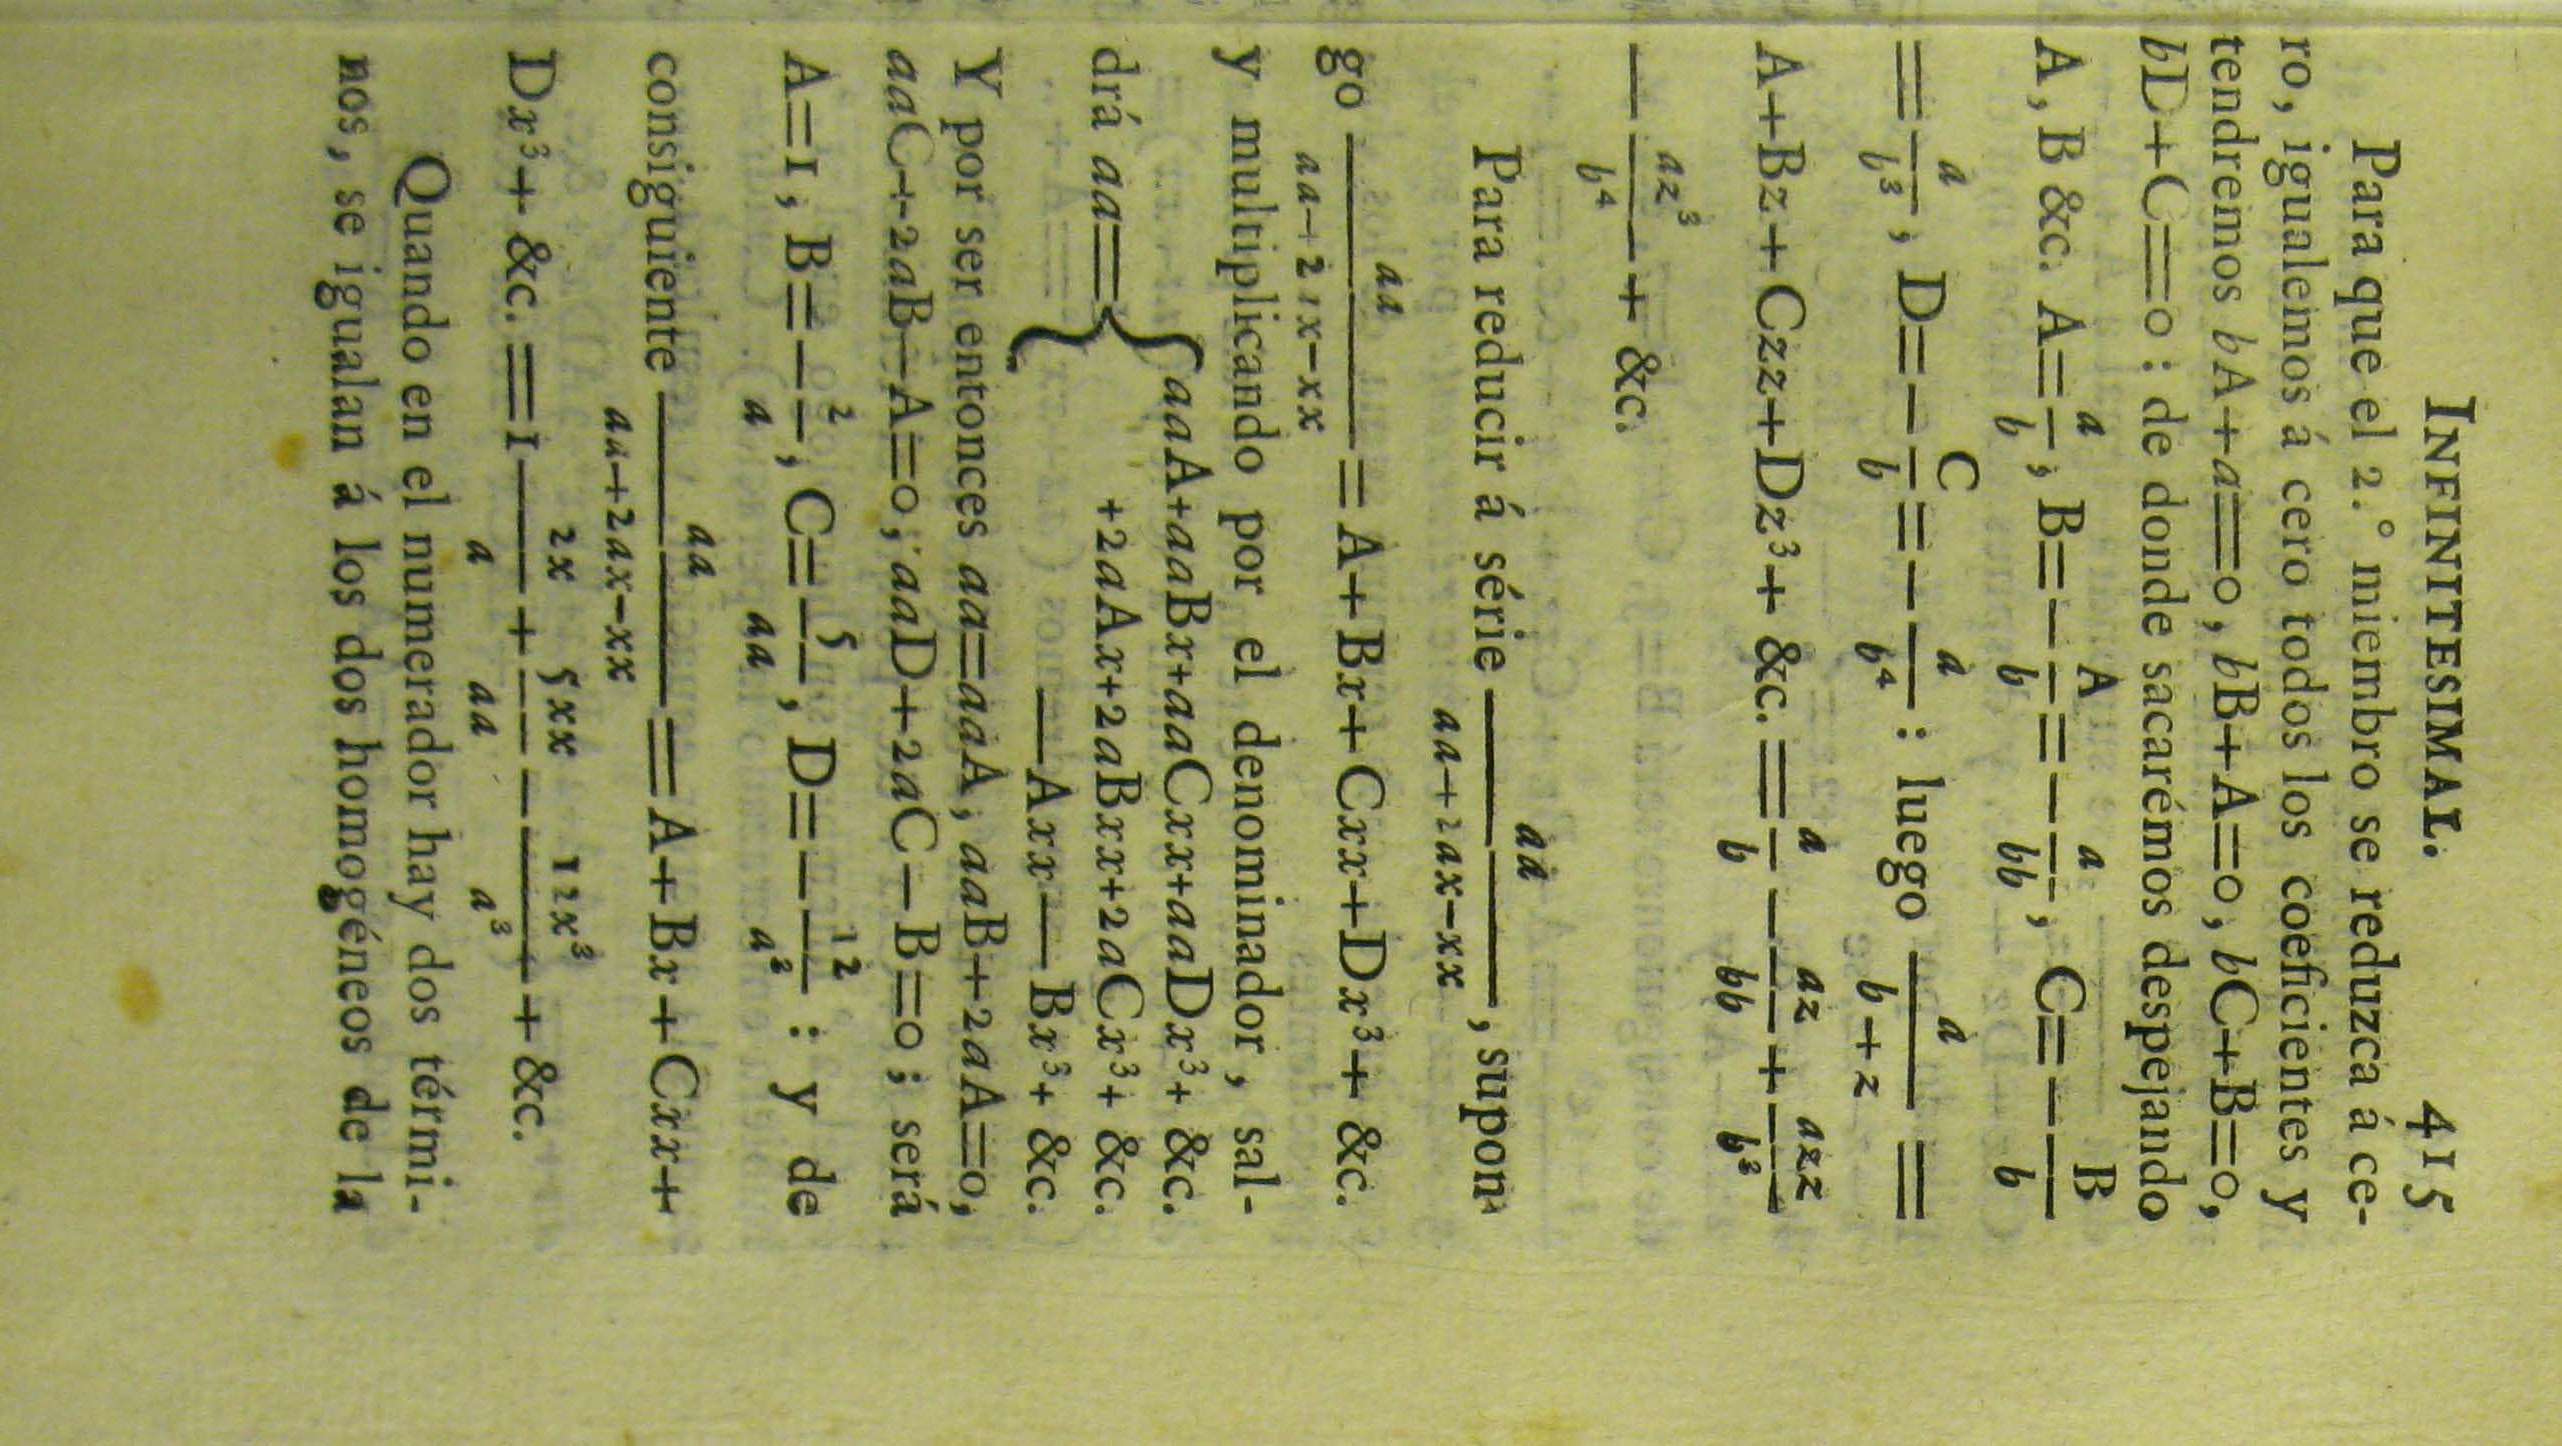 INFINITESIMAL. 415
Para que el 2.° miembro se reduzca á ce-
ro, igualemos á cero todos los coeficientes y
tendremos bA+a=0, bB+A=0, bC+B=0,
bD+C=0: de donde sacarémos despejando
A, B &c. A=a/b, B=-A/b=-a/bb, C=-B/b
=a/b³, D=-C/b=-a/b⁴: luego a/b+z =
A+Bz+Czz+Dz³+ &c.=a/b-az/bb+azz/b³
-az³/b⁴+ &c.
Para reducir á série aa/aa+2ax-xx, supon
go aa/aa+2,x-xx=A+Bx+Cxx+Dx³+ &c.
y multiplicando por el denominador, sal-
drá aa={aaA+aaBx+aaCxx+aaDx³+ &c.
+2aAx+2aBxx+2aCx³+ &c.
—Axx—Bx³+ &c.
Y por ser entonces aa=aaA, aaB+2aA=0,
aaC+2aB-A=0, aaD+2aC-B=0; será
A=1, B=-2/a, C=5/aa, D=-12/a³: y de
consiguiente aa/aa+2ax-xx=A+Bx+Cxx+
Dx³+ &c.=1-2x/a+5xx/aa-12x³/a³+ &c.
Quando en el numerador hay dos térmi-
nos, se igualan á los dos homogéneos de la